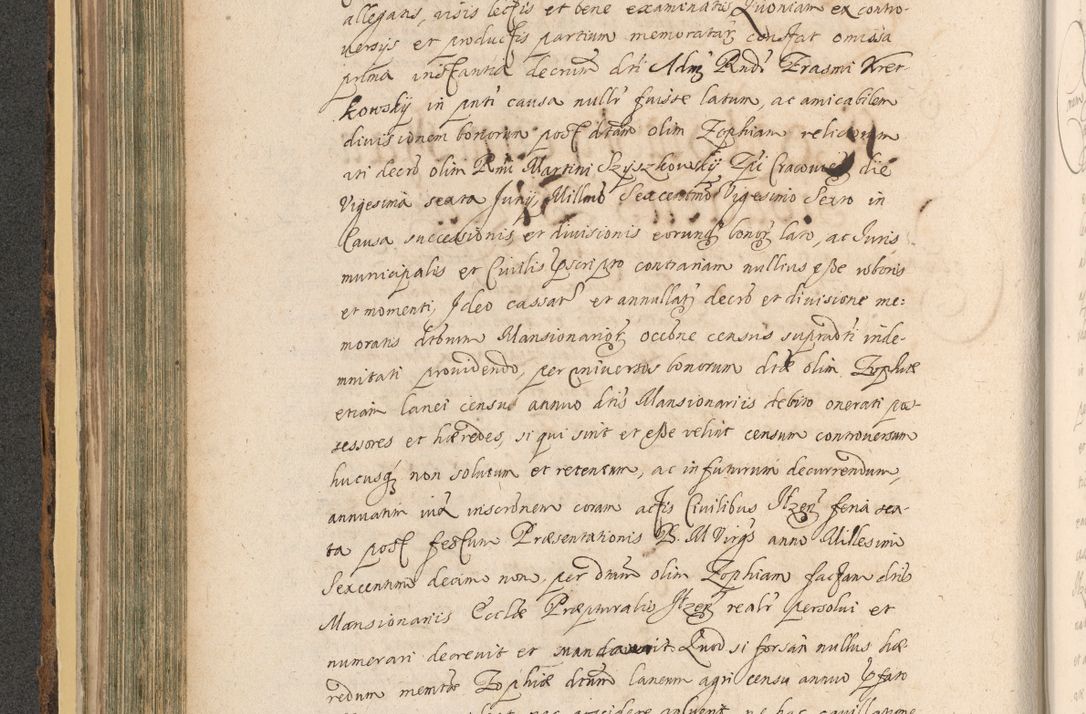 allegans, visis lectis et bene examinatis Quoniam ex contro-
versijs et productis partium memoratar̃ constat omissa
prima instantia decretũ dñi Admˢ Rndi Erasmi Kret-
kowskij in pnti causa nullr̃ fuisse latum, ac amicabilem
divisionem bonorum post dtam olim Zophiam relictorum
iti decrõ olim Rmi Martini Szyszkowskij Epi Cracovieñ die
Vigesima sexta Junij Millmo Sexcentmo Vigesimo Sexto in
Causa successionis et divisionis eorund bonor̃ lato, ac Juris
municipalis et Civilis pscripto contrariam nullius esse roboris
et momenti, Ideo cassatˢ et annullatˢ decrõ et divisione me:
moratis dtorum Mansionarior̃ occõne census supradti inde-
mnitati providendo, per universos bonorum dtæ olim Zophiæ
etiam lanei censu annuo dtis Mansionariis debito onerati pos-
sessores et hæredes, si qui sint et esse velint censum controversum
hucusq non solutum et retentum, ac in futurum decurrendum,
annuatim iux inscrõnem coram actis Civilibus Ilzeñ feria sex-
ta post festum Præsentationis B. M Virgˢ anno Millesimi
Sexcentimi decimo non, per dtam olim Zophiam factam dtis
Mansionariis Ecclæ Præpturalis Ilzeñ realr̃ persolui et
numerari decrevit et mandavit Quod si forsan nullus hæ-
redum memtæ Zophiæ dtum laneum agri censu annuo pfato